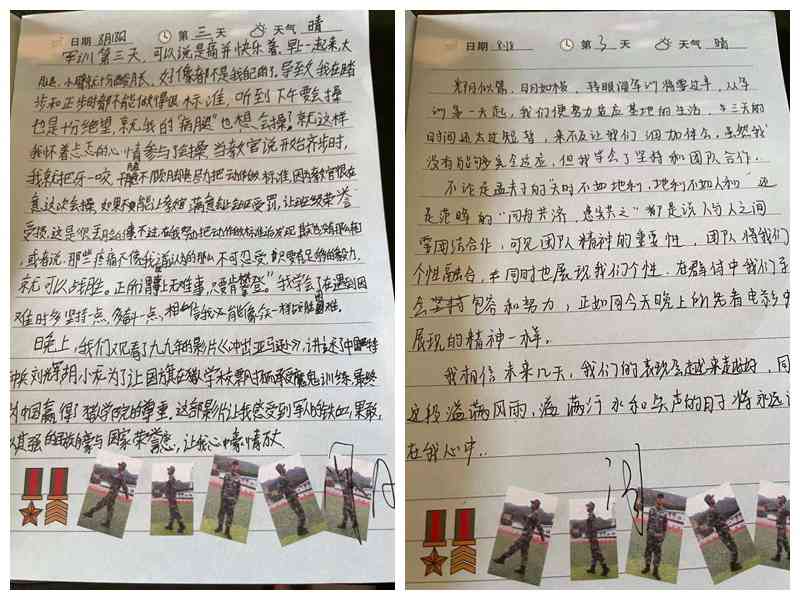 日期 8月18日 第 三 天 天气 晴
军训第三天,可以说是痛并快乐着,早上一起来,大
腿、小腿都十分酸胀,好像都不是我自己的了。导致我在踏
步和正步时都不能做得很标准,听到下午要会操
也是十分绝望,就我的"病腿"也想会操?就这样
我怀着忐忑的心情参与了会操,当教官说开始齐步时,
我就把牙一咬,不顾脚跟尽力把动作做标准,因为教官很在
意这次会操,如果不能让教官满意
受损,这是
或者说,那些疼痛不像我认为的那么不可忍受,只要有足够的毅力,
就可以战胜。正所谓"世上无难事,只要肯攀登。"我学会了在遇到困
难时多坚持一点,多一点,相信我
晚上,我们又观看了九九年的影片《冲出亚马逊》,讲述了中国特
种兵 胡小龙为了让国旗在猎人学校飘扬而承受魔鬼训练,最终
为中国赢得了猎人学院的尊重,这部影片让我感受到军人的铁血,果敢,
以其强的民族自豪与国家荣誉感,让我心中豪情万丈
日期: 8.18 第 3 天 天气 晴
光阴似箭,日月如梭,转眼间军训将要过半,从军
训第一天起,我们便努力适应基地的生活,三天的
时间还太过短暂,来不及让我们细加体会,虽然我
没有能够完全适应,但我学会了坚持和团队合作。
不论是孟夫子的"天时不如地利,地利不如人和"还
是范晔的"同舟共济,患实共之"都是说人与人之间
要团结合作,可见团队精神的重要性,团队将我们
个性融合,并同时也展现我们个性,在群体中我们学
会坚持包容和努力,正如同今天晚上的先者电影中
展现的精神一样。
我相信未来几天,我们的表现会越来越好,同
这段溢满风雨,溢满汗水和 的日子将永远
在我心中..